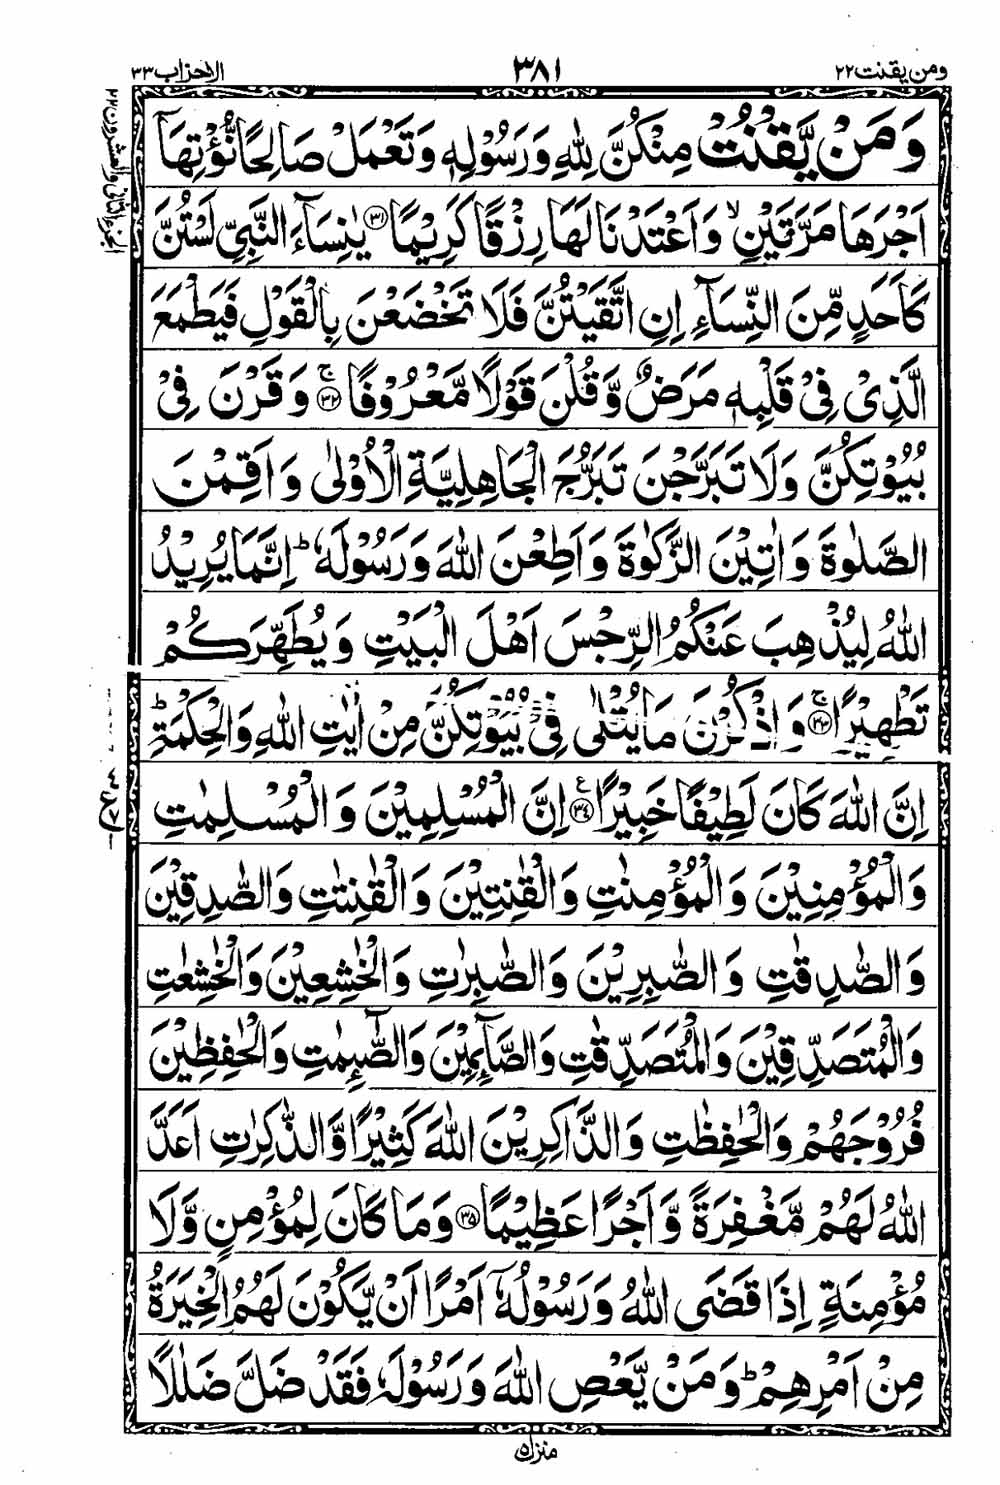 ومن یقنت۲۲
۳۸۱
الاحزاب۳۳
وَمَنْ يَّقْنُتْ مِنْكُنَّ لِلّٰهِ وَرَسُوْلِهٖ وَتَعْمَلْ صَالِحًا نُّؤْتِهَآ
اَجْرَهَا مَرَّتَيْنِ ۙ وَاَعْتَدْنَا لَهَا رِزْقًا كَرِيْمًا ﴿۳۱﴾ يٰنِسَآءَ النَّبِيِّ لَسْتُنَّ
كَاَحَدٍ مِّنَ النِّسَآءِ اِنِ اتَّقَيْتُنَّ فَلَا تَخْضَعْنَ بِالْقَوْلِ فَيَطْمَعَ
الَّذِيْ فِيْ قَلْبِهٖ مَرَضٌ وَّقُلْنَ قَوْلًا مَّعْرُوْفًا ﴿۳۲﴾ۚ وَقَرْنَ فِيْ
بُيُوْتِكُنَّ وَلَا تَبَرَّجْنَ تَبَرُّجَ الْجَاهِلِيَّةِ الْاُوْلٰى وَاَقِمْنَ
الصَّلٰوةَ وَاٰتِيْنَ الزَّكٰوةَ وَاَطِعْنَ اللّٰهَ وَرَسُوْلَهٗ ؕ اِنَّمَا يُرِيْدُ
اللّٰهُ لِيُذْهِبَ عَنْكُمُ الرِّجْسَ اَهْلَ الْبَيْتِ وَيُطَهِّرَكُمْ
تَطْهِيْرًا ﴿۳۳﴾ۚ وَاذْكُرْنَ مَا يُتْلٰى فِيْ بُيُوْتِكُنَّ مِنْ اٰيٰتِ اللّٰهِ وَالْحِكْمَةِ ؕ
اِنَّ اللّٰهَ كَانَ لَطِيْفًا خَبِيْرًا ﴿۳۴﴾ع اِنَّ الْمُسْلِمِيْنَ وَالْمُسْلِمٰتِ
وَالْمُؤْمِنِيْنَ وَالْمُؤْمِنٰتِ وَالْقٰنِتِيْنَ وَالْقٰنِتٰتِ وَالصّٰدِقِيْنَ
وَالصّٰدِقٰتِ وَالصّٰبِرِيْنَ وَالصّٰبِرٰتِ وَالْخٰشِعِيْنَ وَالْخٰشِعٰتِ
وَالْمُتَصَدِّقِيْنَ وَالْمُتَصَدِّقٰتِ وَالصَّآىِٕمِيْنَ وَالصّٰٓىِٕمٰتِ وَالْحٰفِظِيْنَ
فُرُوْجَهُمْ وَالْحٰفِظٰتِ وَالذَّاكِرِيْنَ اللّٰهَ كَثِيْرًا وَّالذّٰكِرٰتِ اَعَدَّ
اللّٰهُ لَهُمْ مَّغْفِرَةً وَّاَجْرًا عَظِيْمًا ﴿۳۵﴾ وَمَا كَانَ لِمُؤْمِنٍ وَّلَا
مُؤْمِنَةٍ اِذَا قَضَى اللّٰهُ وَرَسُوْلُهٗٓ اَمْرًا اَنْ يَّكُوْنَ لَهُمُ الْخِيَرَةُ
مِنْ اَمْرِهِمْ ؕ وَمَنْ يَّعْصِ اللّٰهَ وَرَسُوْلَهٗ فَقَدْ ضَلَّ ضَلٰلًا
منزل۵
الجزء الثانی والعشرون ۲۲